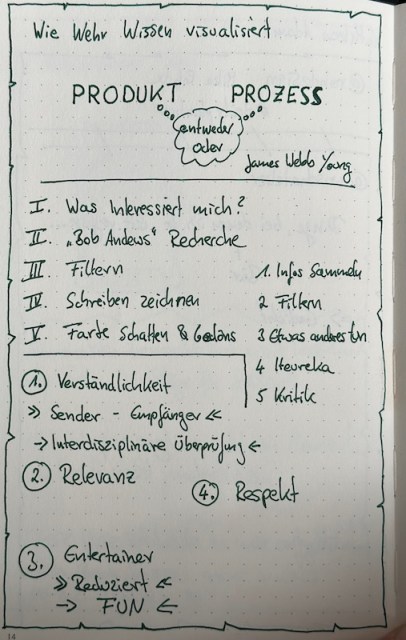 Wie Wehr Wissen visualisiert
PRODUKT PROZESS
entweder
oder
James Webb Young
I. Was Interessiert mich?
II. „Bob Andews" Recherche
III. Filtern
IV. Schreiben zeichnen
V. Farbe Schatten & Gedöns
1. Infos Sammeln
2 Filtern
3 Etwas anderes tun
4 Heureka
5 Kritik
1. Verständlichkeit
>> Sender - Empfänger <<
→ Interdisziplinäre Überprüfung ←
2. Relevanz
4. Respekt
3. Entertainer
>> Reduziert <<
→ FUN ←
14